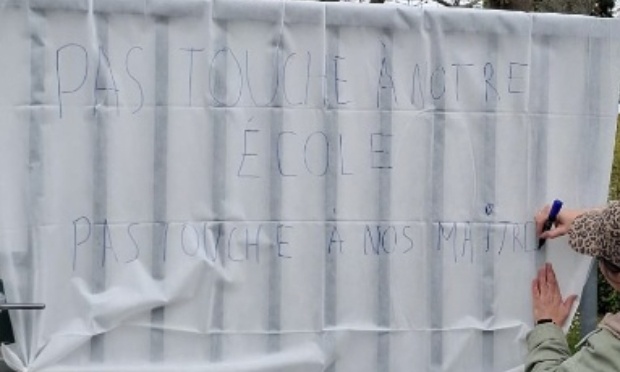 PAS TOUCHE À NOTRE
ÉCOLE
PAS TOUCHE À NOS MAÎTRE